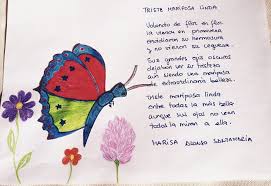 TRISTE MARIPOSA LINDA
Volando de flor en flor
la vieron en primavera
predicaron su hermosura
y no vieron su ceguera.
Sus grandes ojos oscuros
dejaban ver su tristeza
aún siendo una mariposa
de extraordinaria belleza.
Triste mariposa linda
entre todas la más bella
aunque sus ojos no vean
todos la miran a ella.
MARISA ALONSO SANTAMARÍA